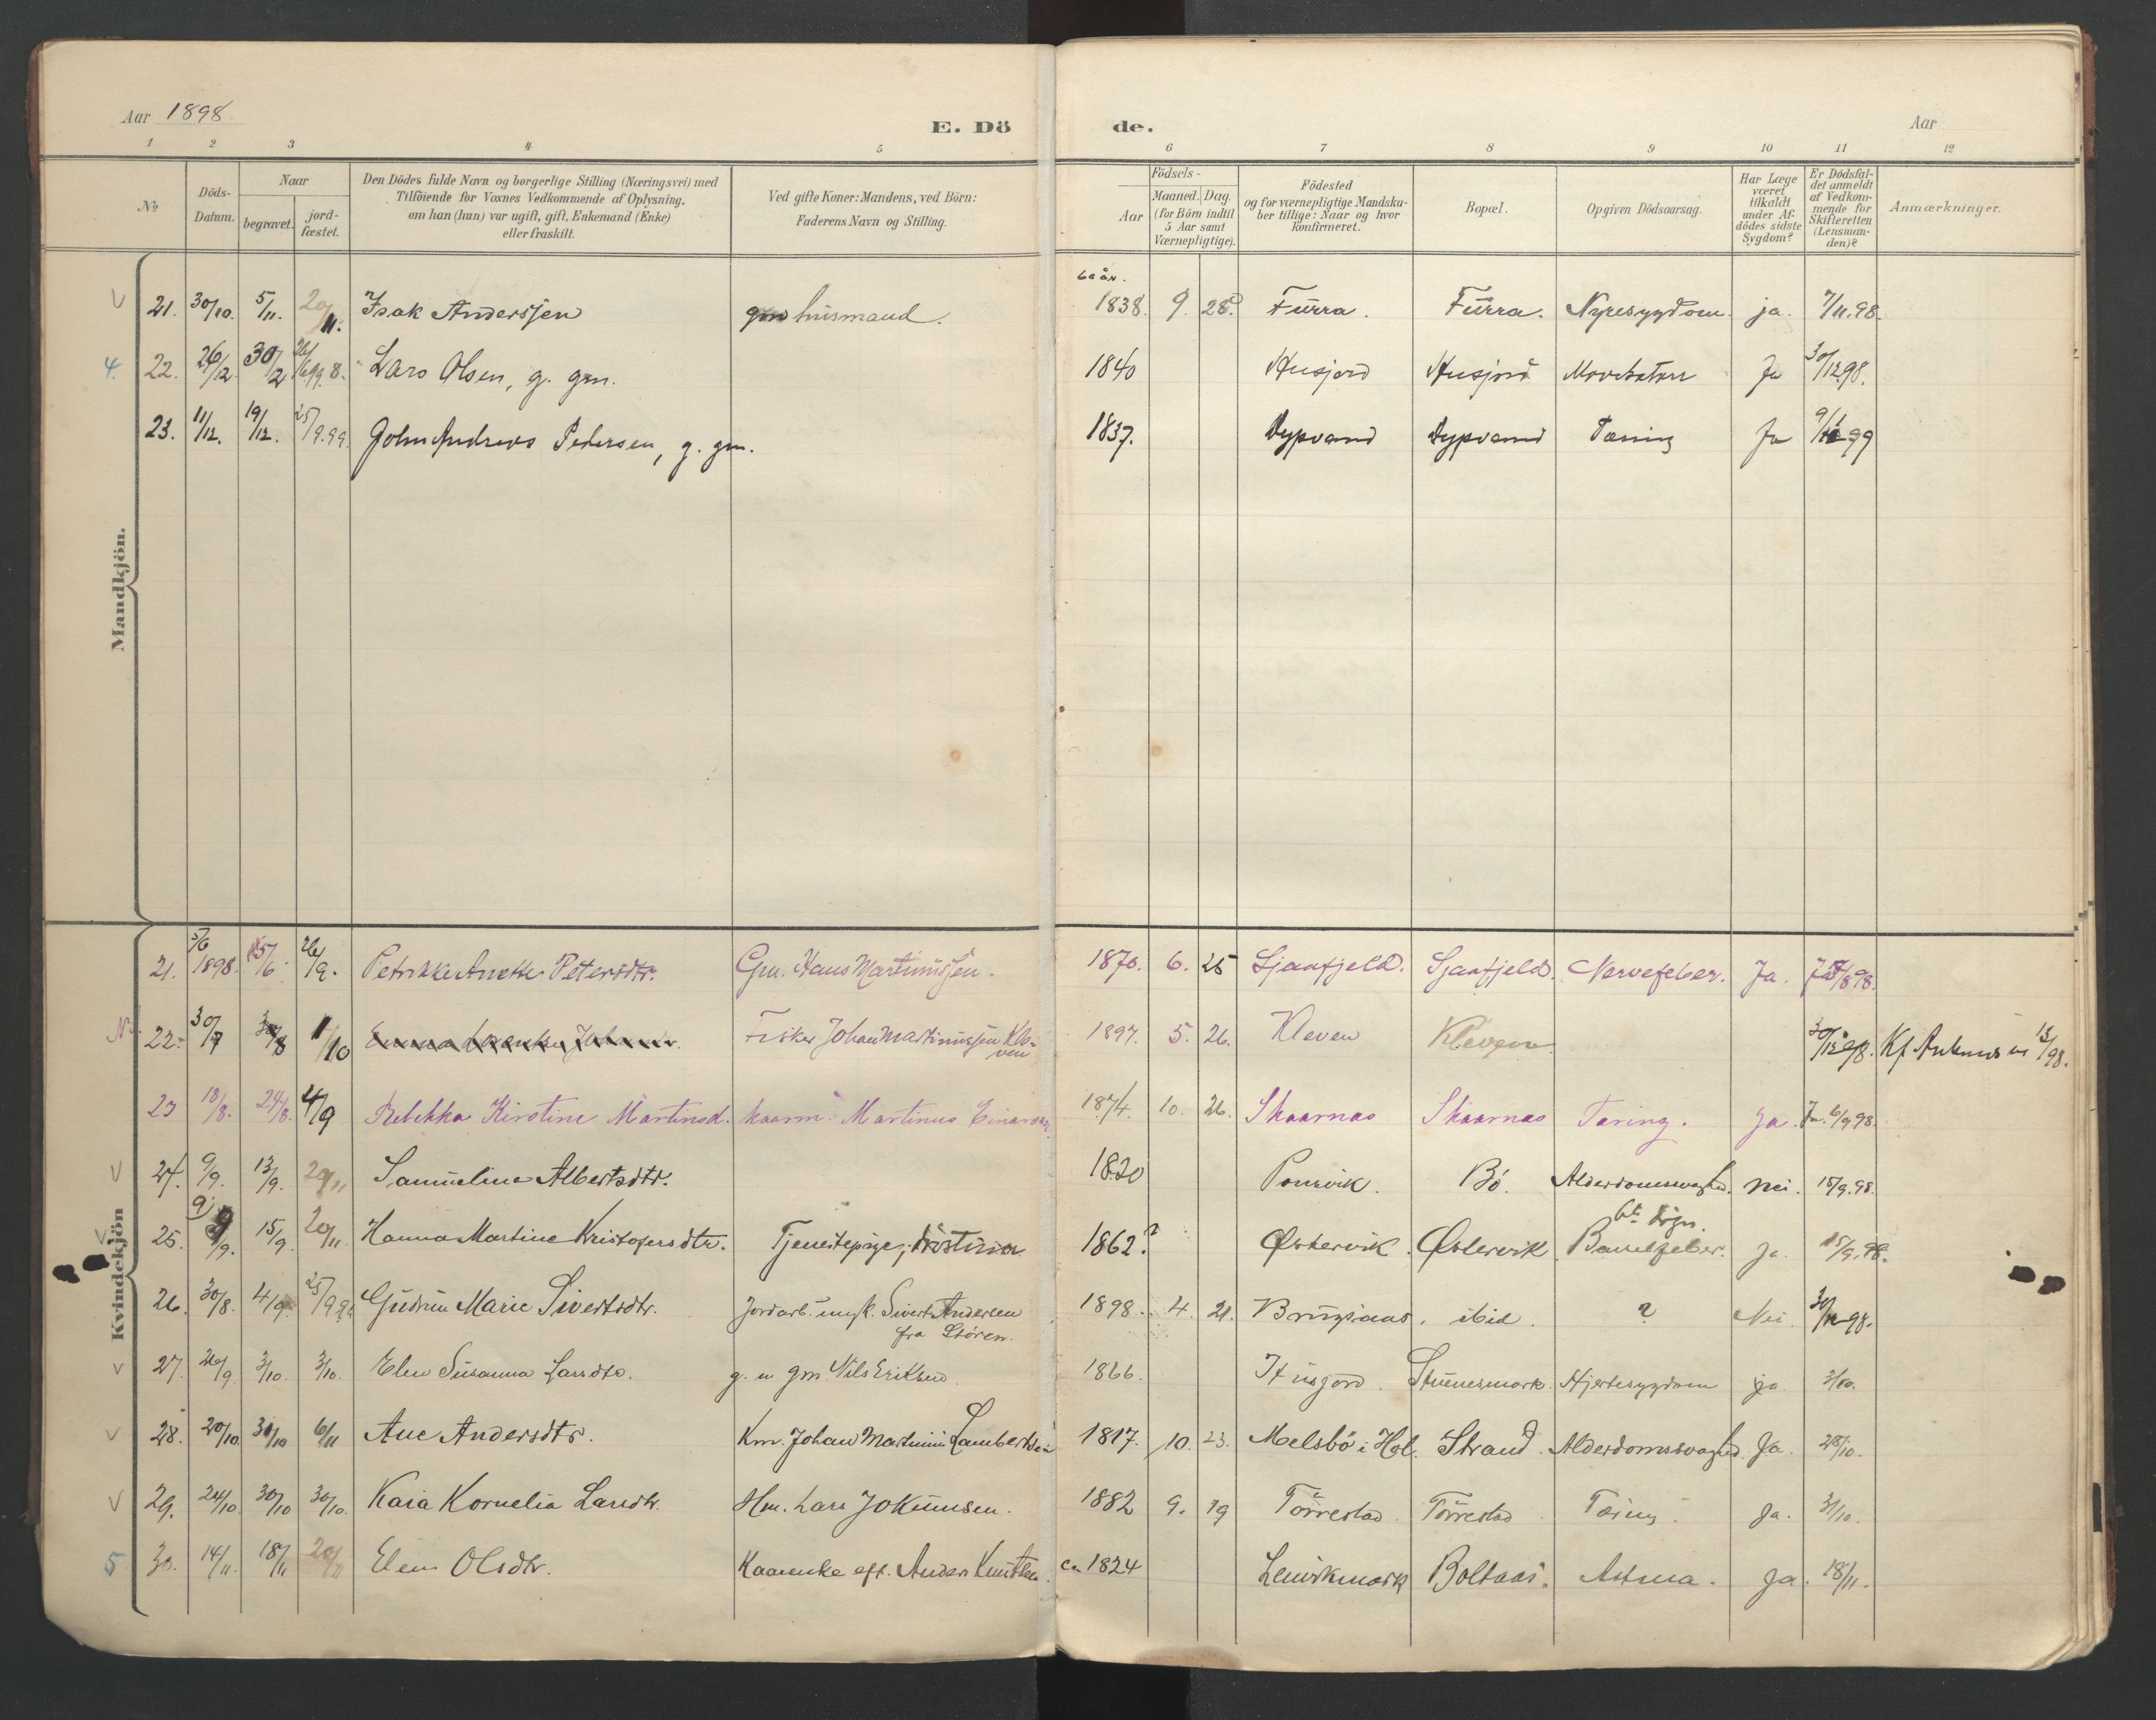 Aar 1898.
E. Dö de.
Aar
1 2 3 4 5 6 7 8 9 10 11 12
No
Döds-Datum.
Naar
begravet.
jord-fæstet.
Den Dödes fulde Navn og borgerlige Stilling (Næringsvei) med
Tilföiende for Voxnes Vedkommende af Oplysning,
om han (hun) var ugift, gift, Enkemand (Enke)
eller fraskilt.
Ved gifte Koner: Mandens, ved Börn:
Faderens Navn og Stilling.
Födsels-
Aar
Maaned. Dag.
(for Börn indtil
5 Aar samt
Værnepligtige).
Födested
og for værnepligtige Mandska-
ber tillige: Naar og hvor
konfirmeret.
Bopæl.
Opgiven Dödsaarsag.
Har Læge
været
tilkaldt
under Af-
dödes sidste
Sygdom?
Er Dödsfal-
det anmeldt
af Vedkom-
mende for
Skifteretten
(Lensman-
den)?
Anmærkninger.
Mandkjön.
60 år.
21. 30/10. 5/11. 20/11. Isak Anderssen gm husmand. 1838. 9. 28. Furra. Furra. Nyresygdom. ja. 7/11.98.
4. 22. 26/12 30/12 Lars Olsen, g. gm. 1840 Husjord Husjord Ja 30/12 98.
23. 11/12. 19/12. 25/9.99. John Andreas Pedersen, g. gm. 1837. Dypvand Dypvand Tæring Ja 99
Kvindekjön
21. 5/6 1898. 15/6. 26/9. Petrikke Anette Petersdtr. Gm. Hans Martinussen. 1870. 6. 25 Sjaafjeld. Sjaafjeld. Nervefeber. Ja. 98.
22. 30/7 11/10 Fisker Johan Martinussen Kleven 1897. 5. 26. Kleven Kleven 30/12 98. Kf
23 18/8. 24/8. 4/9 Rebekka Kirstine Martinsd. kaarm. Martinus Einarsen. 1874. 10. 26. Skaarnas Skaarnas Tæring. Ja. Ja. 6/9 98.
24. 9/9. 13/9. 20/11 Samueline Albertsdtr. 1820 Ponsvik. Bö. Alderdomssvaghed. Nei. 15/9.98.
25. 9/9. 15/9. 20/11 Hanna Martine Kristofersdtr. Tjenestepige; 1862? Østervik. Østervik. Barselfeber. Ja. 15/9.98.
26. 30/8. 4/9. 25/9 99. Gudrun Marie Sivertsdtr. Jordarb. ungk. Sivert Andersen
fra Stören. 1898. 4. 21. ibid. ? Nei. 98.
27. 26/9. 3/10. 3/10. Elen Susanna Larsdtr. g. m gm. Nils Eriksen 1866. Husjord. Stunesmark. Hjertesygdom ja 3/10.
28. 20/10. 30/10 6/11 Ane Andersdtr. Km. Johan Martinus Lambertsen 1817. 10. 23. Melsbö i Hol. Strand. Alderdomssvaghed. Ja. 28/10.
29. 24/10. 30/10 30/10. Kaia Kornelia Larsdtr. Hm. Lars Jokumsen. 1882 9. 19 Törrestad. Törrestad Tæring. Ja. 31/10.
5 30. 14/11. 18/11 20/11 Elen Olsdtr. Kaarenke eft. Anders Knutsen. ca 1824 Lenvikmark Boltaas. Astma. Ja. 18/11.